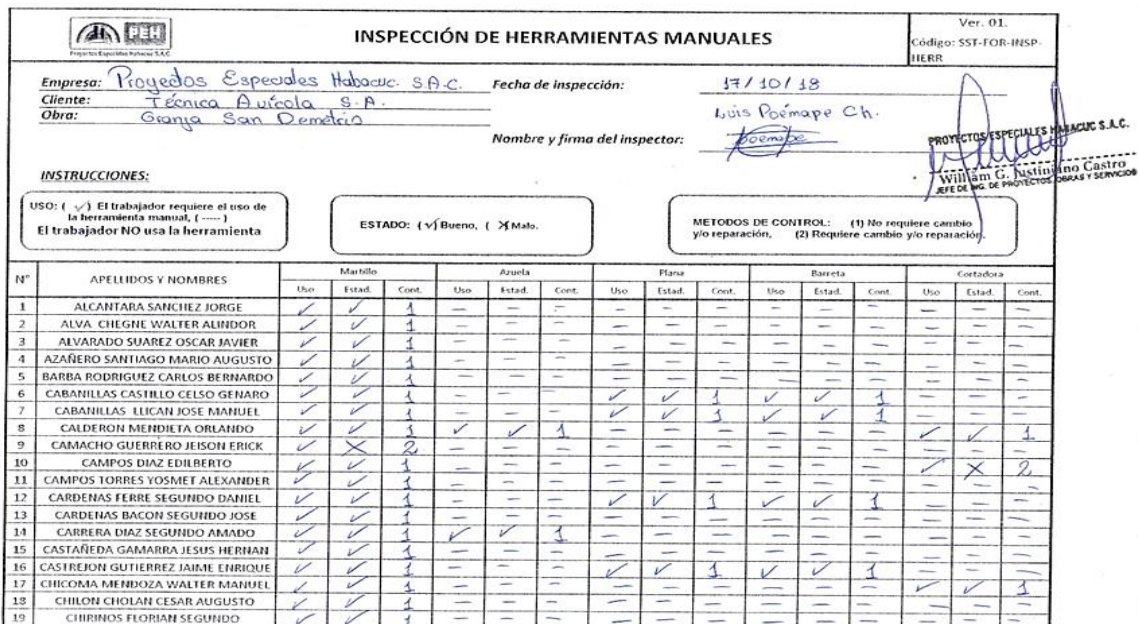 PEH
Proyectos Especiales Habacuc S.A.C.
INSPECCIÓN DE HERRAMIENTAS MANUALES
Ver. 01.
Código: SST-FOR-INSP-
HERR
Empresa: Proyectos Especiales Habacuc. S.A.C. Fecha de inspección: 17/10/18
Cliente: Técnica Avícola S.A.
Obra: Granja San Demetrio
Luis Poémape Ch.
Nombre y firma del inspector: Poemape
PROYECTOS ESPECIALES HABACUC S.A.C.
William G. Justiniano Castro
JEFE DE ING. DE PROYECTOS, OBRAS Y SERVICIOS
INSTRUCCIONES:
USO: ( ✓ ) El trabajador requiere el uso de
la herramienta manual, ( ----- )
El trabajador NO usa la herramienta
ESTADO: ( ✓ ) Bueno, ( X ) Malo.
METODOS DE CONTROL: (1) No requiere cambio
y/o reparación, (2) Requiere cambio y/o reparación.
N° APELLIDOS Y NOMBRES Martillo Azuela Plana Barreta Cortadora
Uso Estad. Cont. Uso Estad. Cont. Uso Estad. Cont. Uso Estad. Cont. Uso Estad. Cont.
1 ALCANTARA SANCHEZ JORGE ✓ ✓ 1 — — — — — — — — — — — —
2 ALVA CHEGNE WALTER ALINDOR ✓ ✓ 1 — — — — — — — — — — — —
3 ALVARADO SUAREZ OSCAR JAVIER ✓ ✓ 1 — — — — — — — — — — — —
4 AZAÑERO SANTIAGO MARIO AUGUSTO ✓ ✓ 1 — — — — — — — — — — — —
5 BARBA RODRIGUEZ CARLOS BERNARDO ✓ ✓ 1 — — — — — — — — — — — —
6 CABANILLAS CASTILLO CELSO GENARO ✓ ✓ 1 — — — ✓ ✓ 1 ✓ ✓ 1 — — —
7 CABANILLAS LLICAN JOSE MANUEL ✓ ✓ 1 — — — ✓ ✓ 1 ✓ ✓ 1 — — —
8 CALDERON MENDIETA ORLANDO ✓ ✓ 1 ✓ ✓ 1 — — — — — — ✓ ✓ 1
9 CAMACHO GUERRERO JEISON ERICK ✓ X 2 — — — — — — — — — — — —
10 CAMPOS DIAZ EDILBERTO ✓ ✓ 1 — — — — — — — — — ✓ X 2
11 CAMPOS TORRES YOSMET ALEXANDER ✓ ✓ 1 — — — — — — — — — — — —
12 CARDENAS FERRE SEGUNDO DANIEL ✓ ✓ 1 — — — ✓ ✓ 1 ✓ ✓ 1 — — —
13 CARDENAS BACON SEGUNDO JOSE ✓ ✓ 1 — — — — — — — — — — — —
14 CARRERA DIAZ SEGUNDO AMADO ✓ ✓ 1 ✓ ✓ 1 — — — — — — — — —
15 CASTAÑEDA GAMARRA JESUS HERNAN ✓ ✓ 1 — — — — — — — — — — — —
16 CASTREJON GUTIERREZ JAIME ENRIQUE ✓ ✓ 1 — — — ✓ ✓ 1 ✓ ✓ 1 — — —
17 CHICOMA MENDOZA WALTER MANUEL ✓ ✓ 1 — — — — — — — — — ✓ ✓ 1
18 CHILON CHOLAN CESAR AUGUSTO ✓ ✓ 1 — — — — — — — — — — — —
19 CHIRINOS FLORIAN SEGUNDO ✓ ✓ 1 — — — — — — — — — — — —